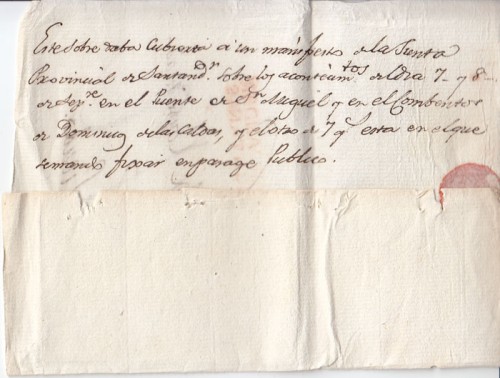 Este sobre daba Cubierta a un manifiesto de la Junta
Provincial de Santandr. sobre los acontecimtos. de Dia 7 y 8
de Sepre. en el Puente de Sn. Miguel y en el Combento
de Dominicos de las Caldas, y el otro de 7 y esta en el que
se mando fixar en parage Publico.